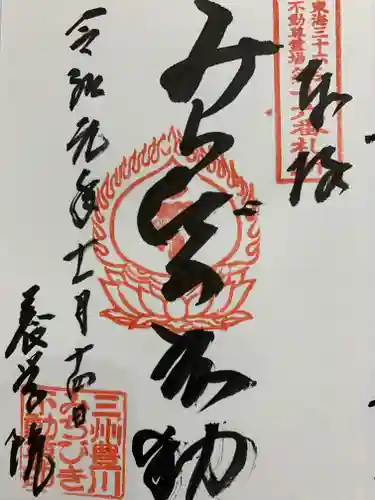 奉拝
東海三十六
不動尊霊場
番札所
みちびき不動
令和元年十一月十四日
養学院
三州豊川
みちびき
不動